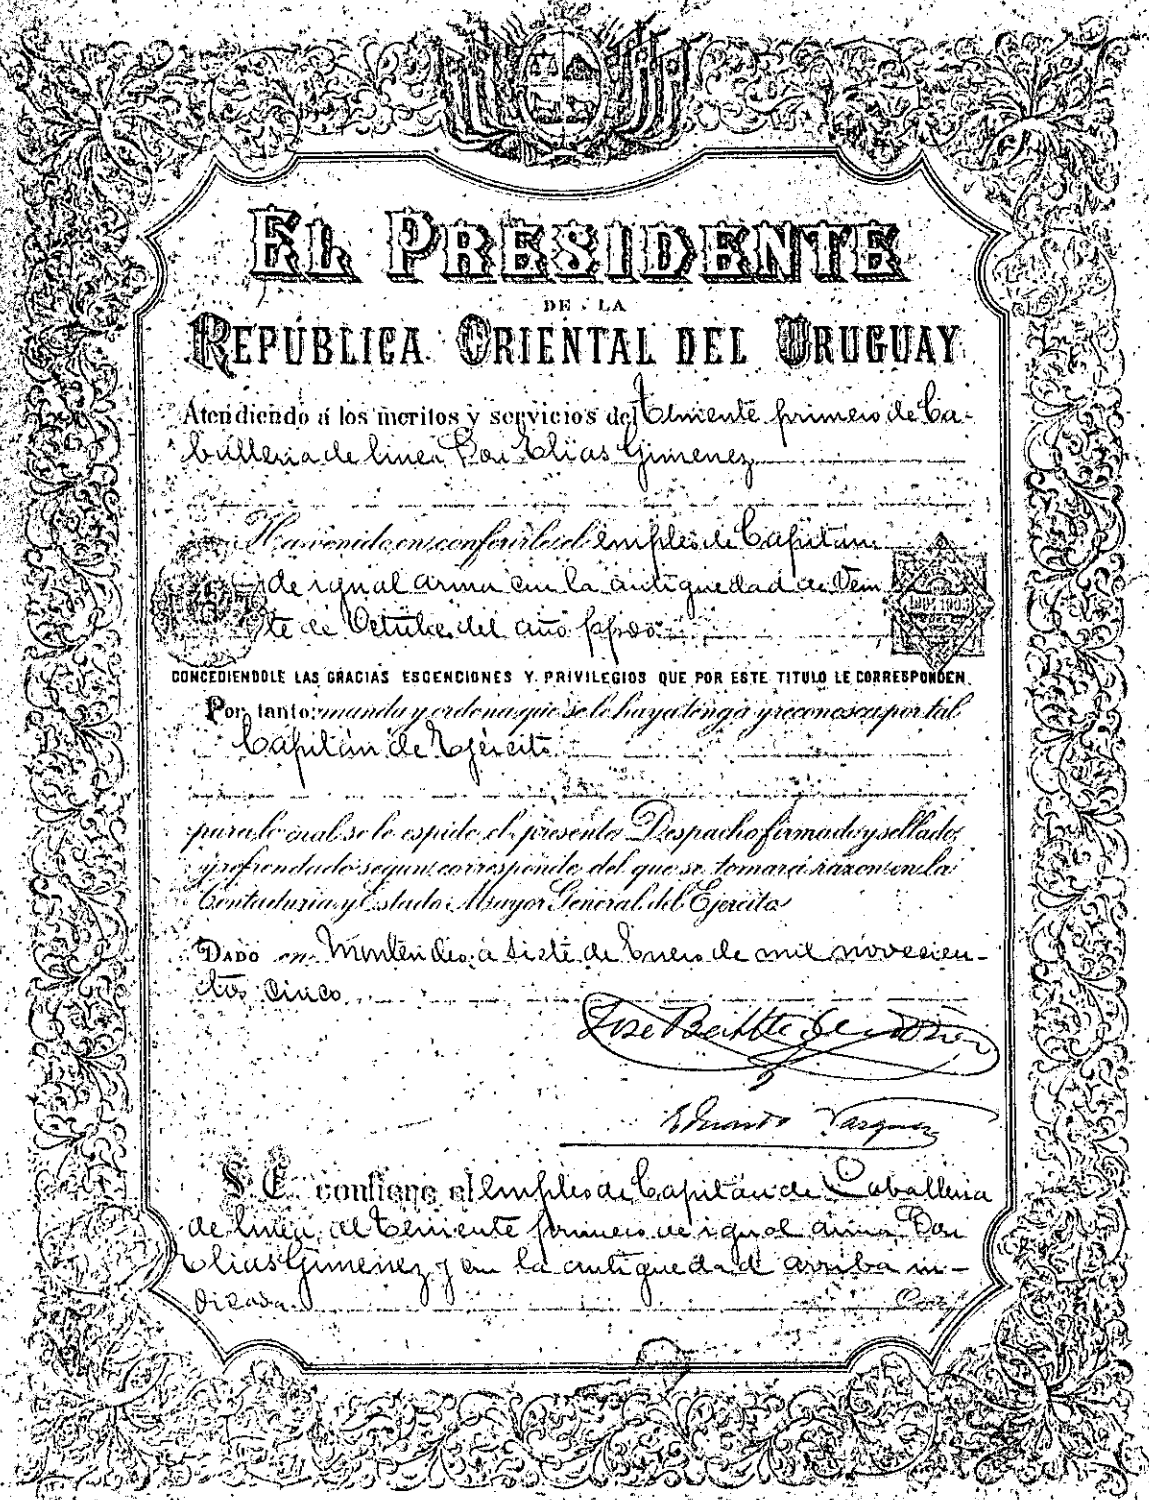 EL PRESIDENTE
DE LA
REPÚBLICA ORIENTAL DEL URUGUAY
Atendiendo á los meritos y servicios del Teniente primero de Ca-
balleria de linea Don Elias Gimenez
Ha venido en conferirle el empleo de Capitan
de igual arma con la antiguedad de Vein
te de Octubre del año ppdo.
CONCEDIENDOLE LAS GRACIAS ESCENCIONES Y PRIVILEGIOS QUE POR ESTE TITULO LE CORRESPONDEN.
Por tanto: manda y ordena que se le haya tenga y reconosca por tal
Capitán de Ejército
para lo cual se le espide el presente Despacho firmado y sellado,
y refrendado segun corresponde del que se tomará razon en la
Contaduria y Estado Mayor General del Ejercito
DADO en Montevideo, a siete de Enero de mil novecien-
tos cinco
José Batlle y Ordóñez
Eduardo Vazquez
S. E. confiere el empleo de Capitan de Caballeria
de linea, al Teniente primero de igual arma Don
Elias Gimenez y con la antiguedad arriba in-
dicada.